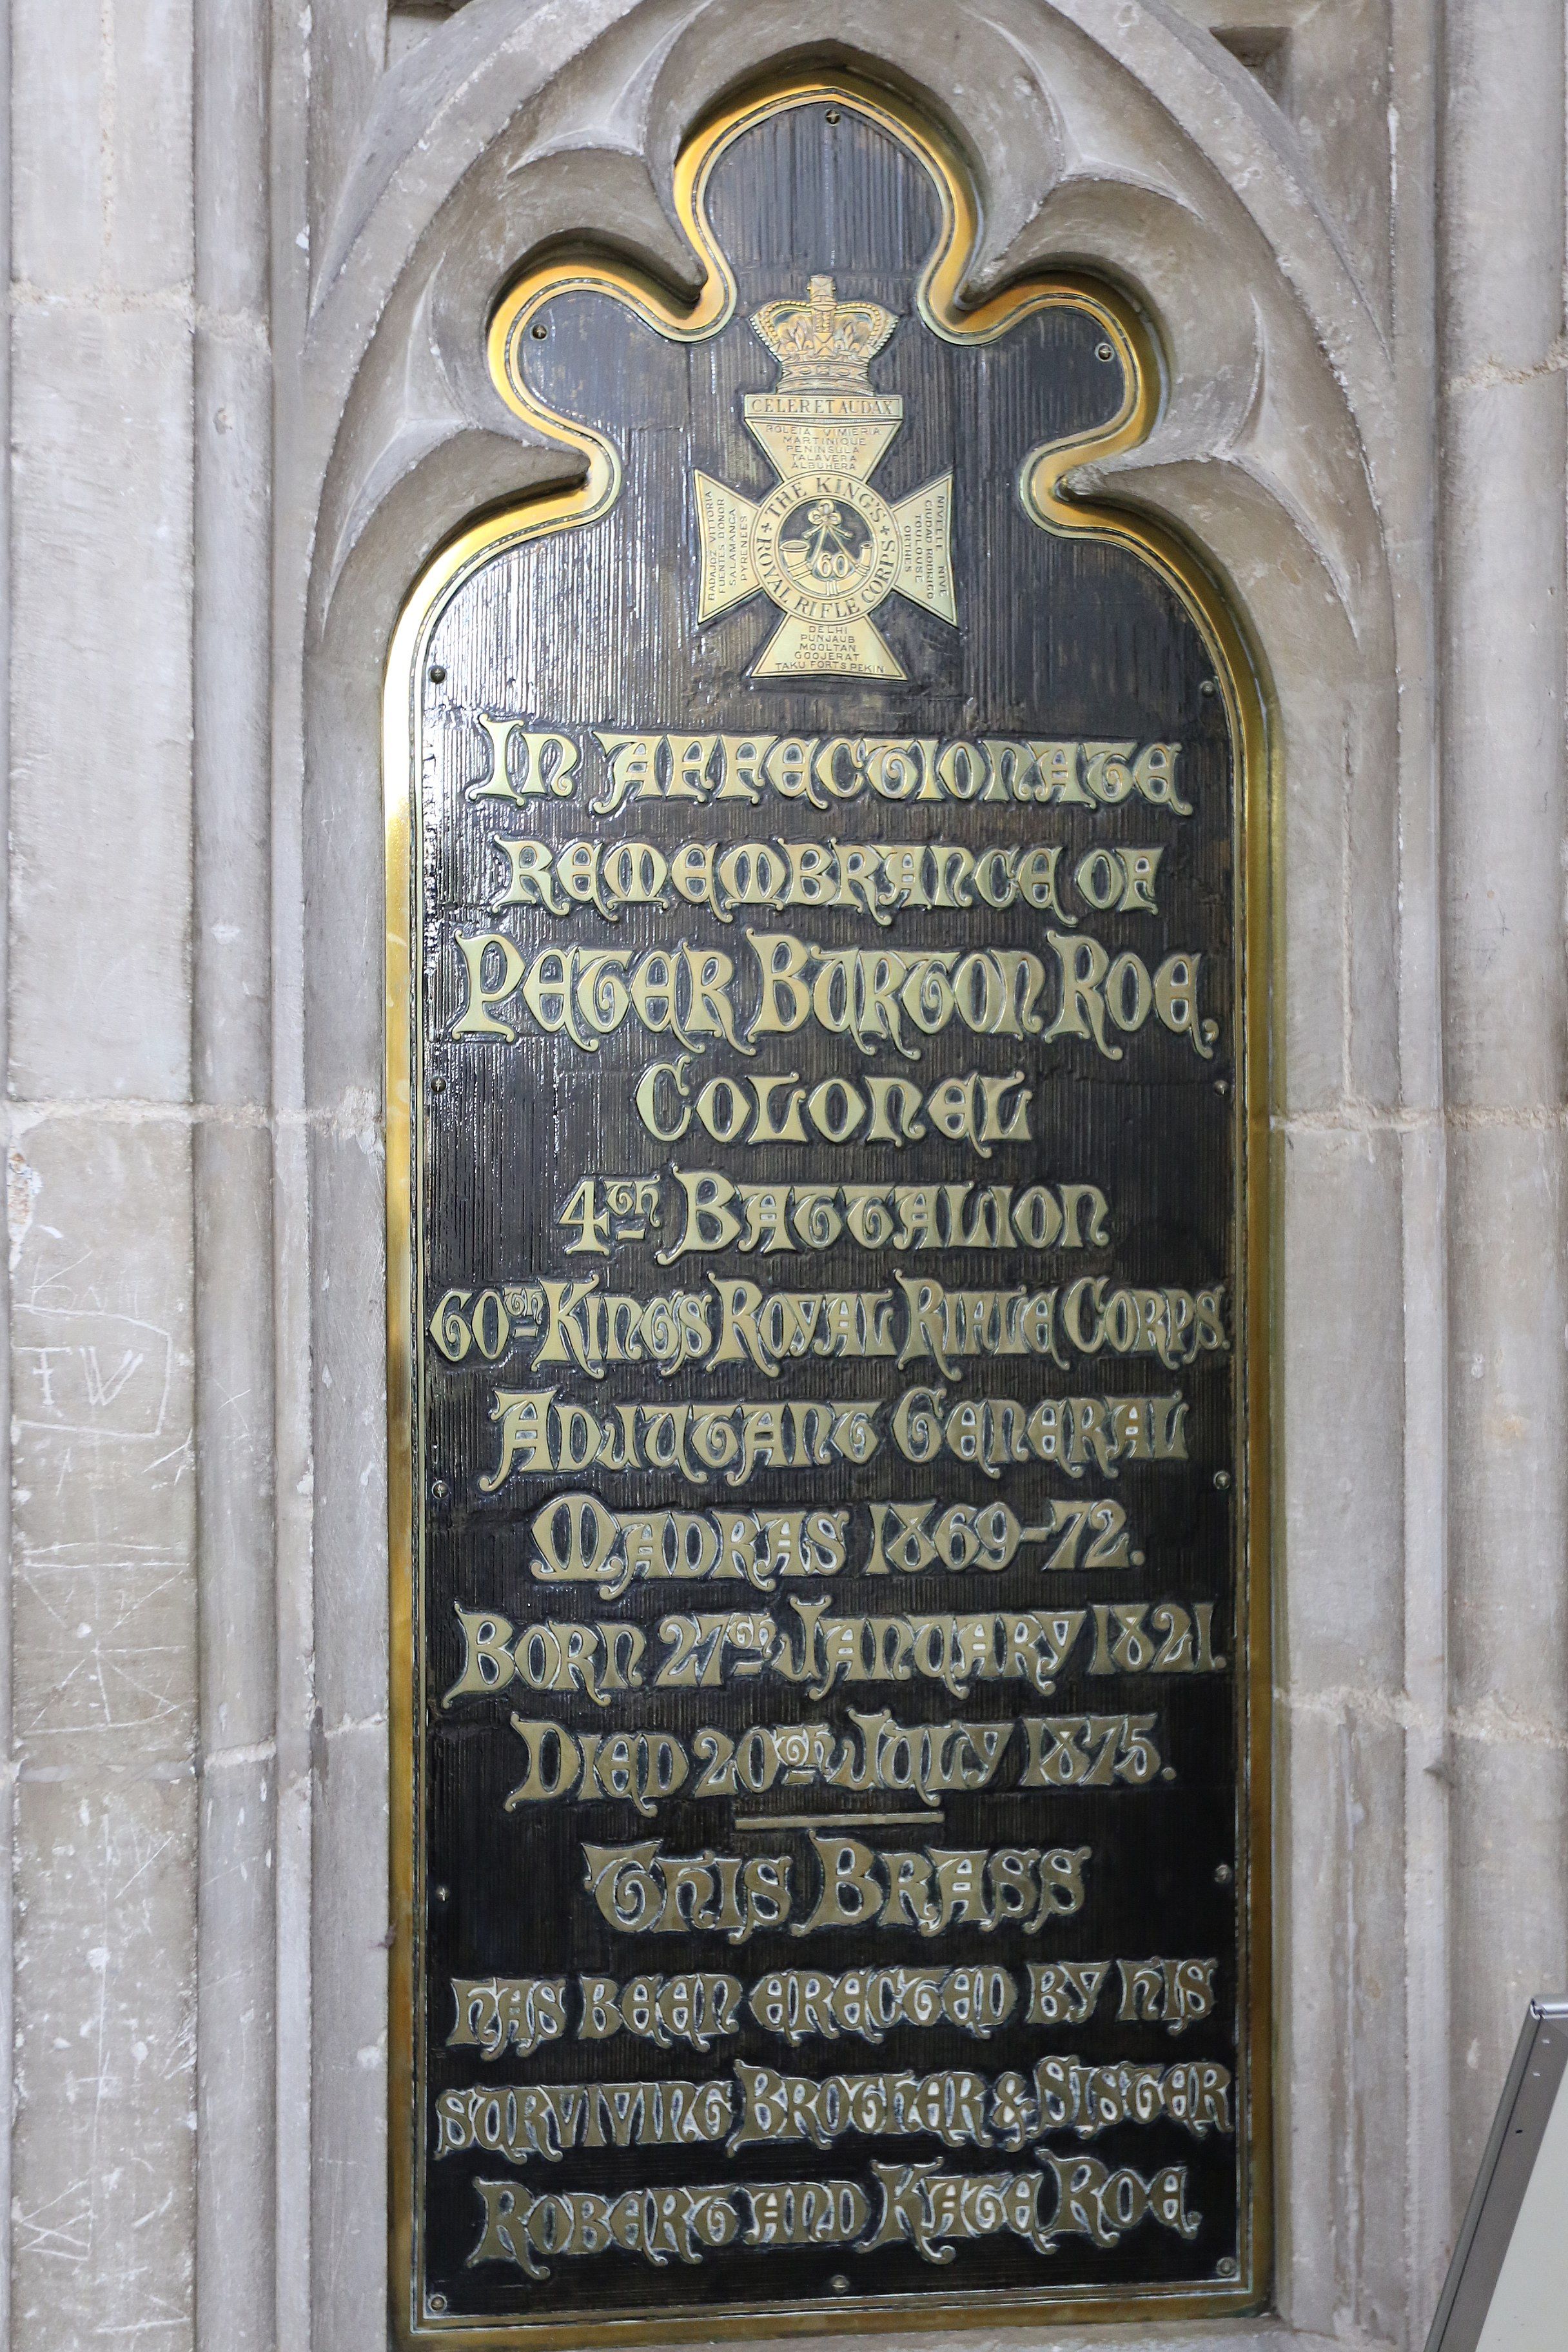 CELER ET AUDAX
ROLEIA VIMIERA
MARTINIQUE
PENINSULA
TALAVERA
ALBUHERA
BADAJOZ VITTORIA
FUENTES D'ONOR
SALAMANCA
PYRENEES
THE KING'S
ROYAL RIFLE CORPS
60
NIVELLE NIVE
CIUDAD RODRIGO
TOULOUSE
ORTHES
DELHI
PUNJAUB
MOOLTAN
GOOJERAT
TAKU FORTS PEKIN
In affectionate
remembrance of
Peter Burton Roe,
Colonel
4th Battalion
60th King's Royal Rifle Corps.
Adjutant General
Madras 1869-72.
Born 27th January 1821.
Died 20th July 1875.
This Brass
has been erected by his
surviving Brother & Sister
Robert and Kate Roe.
TW